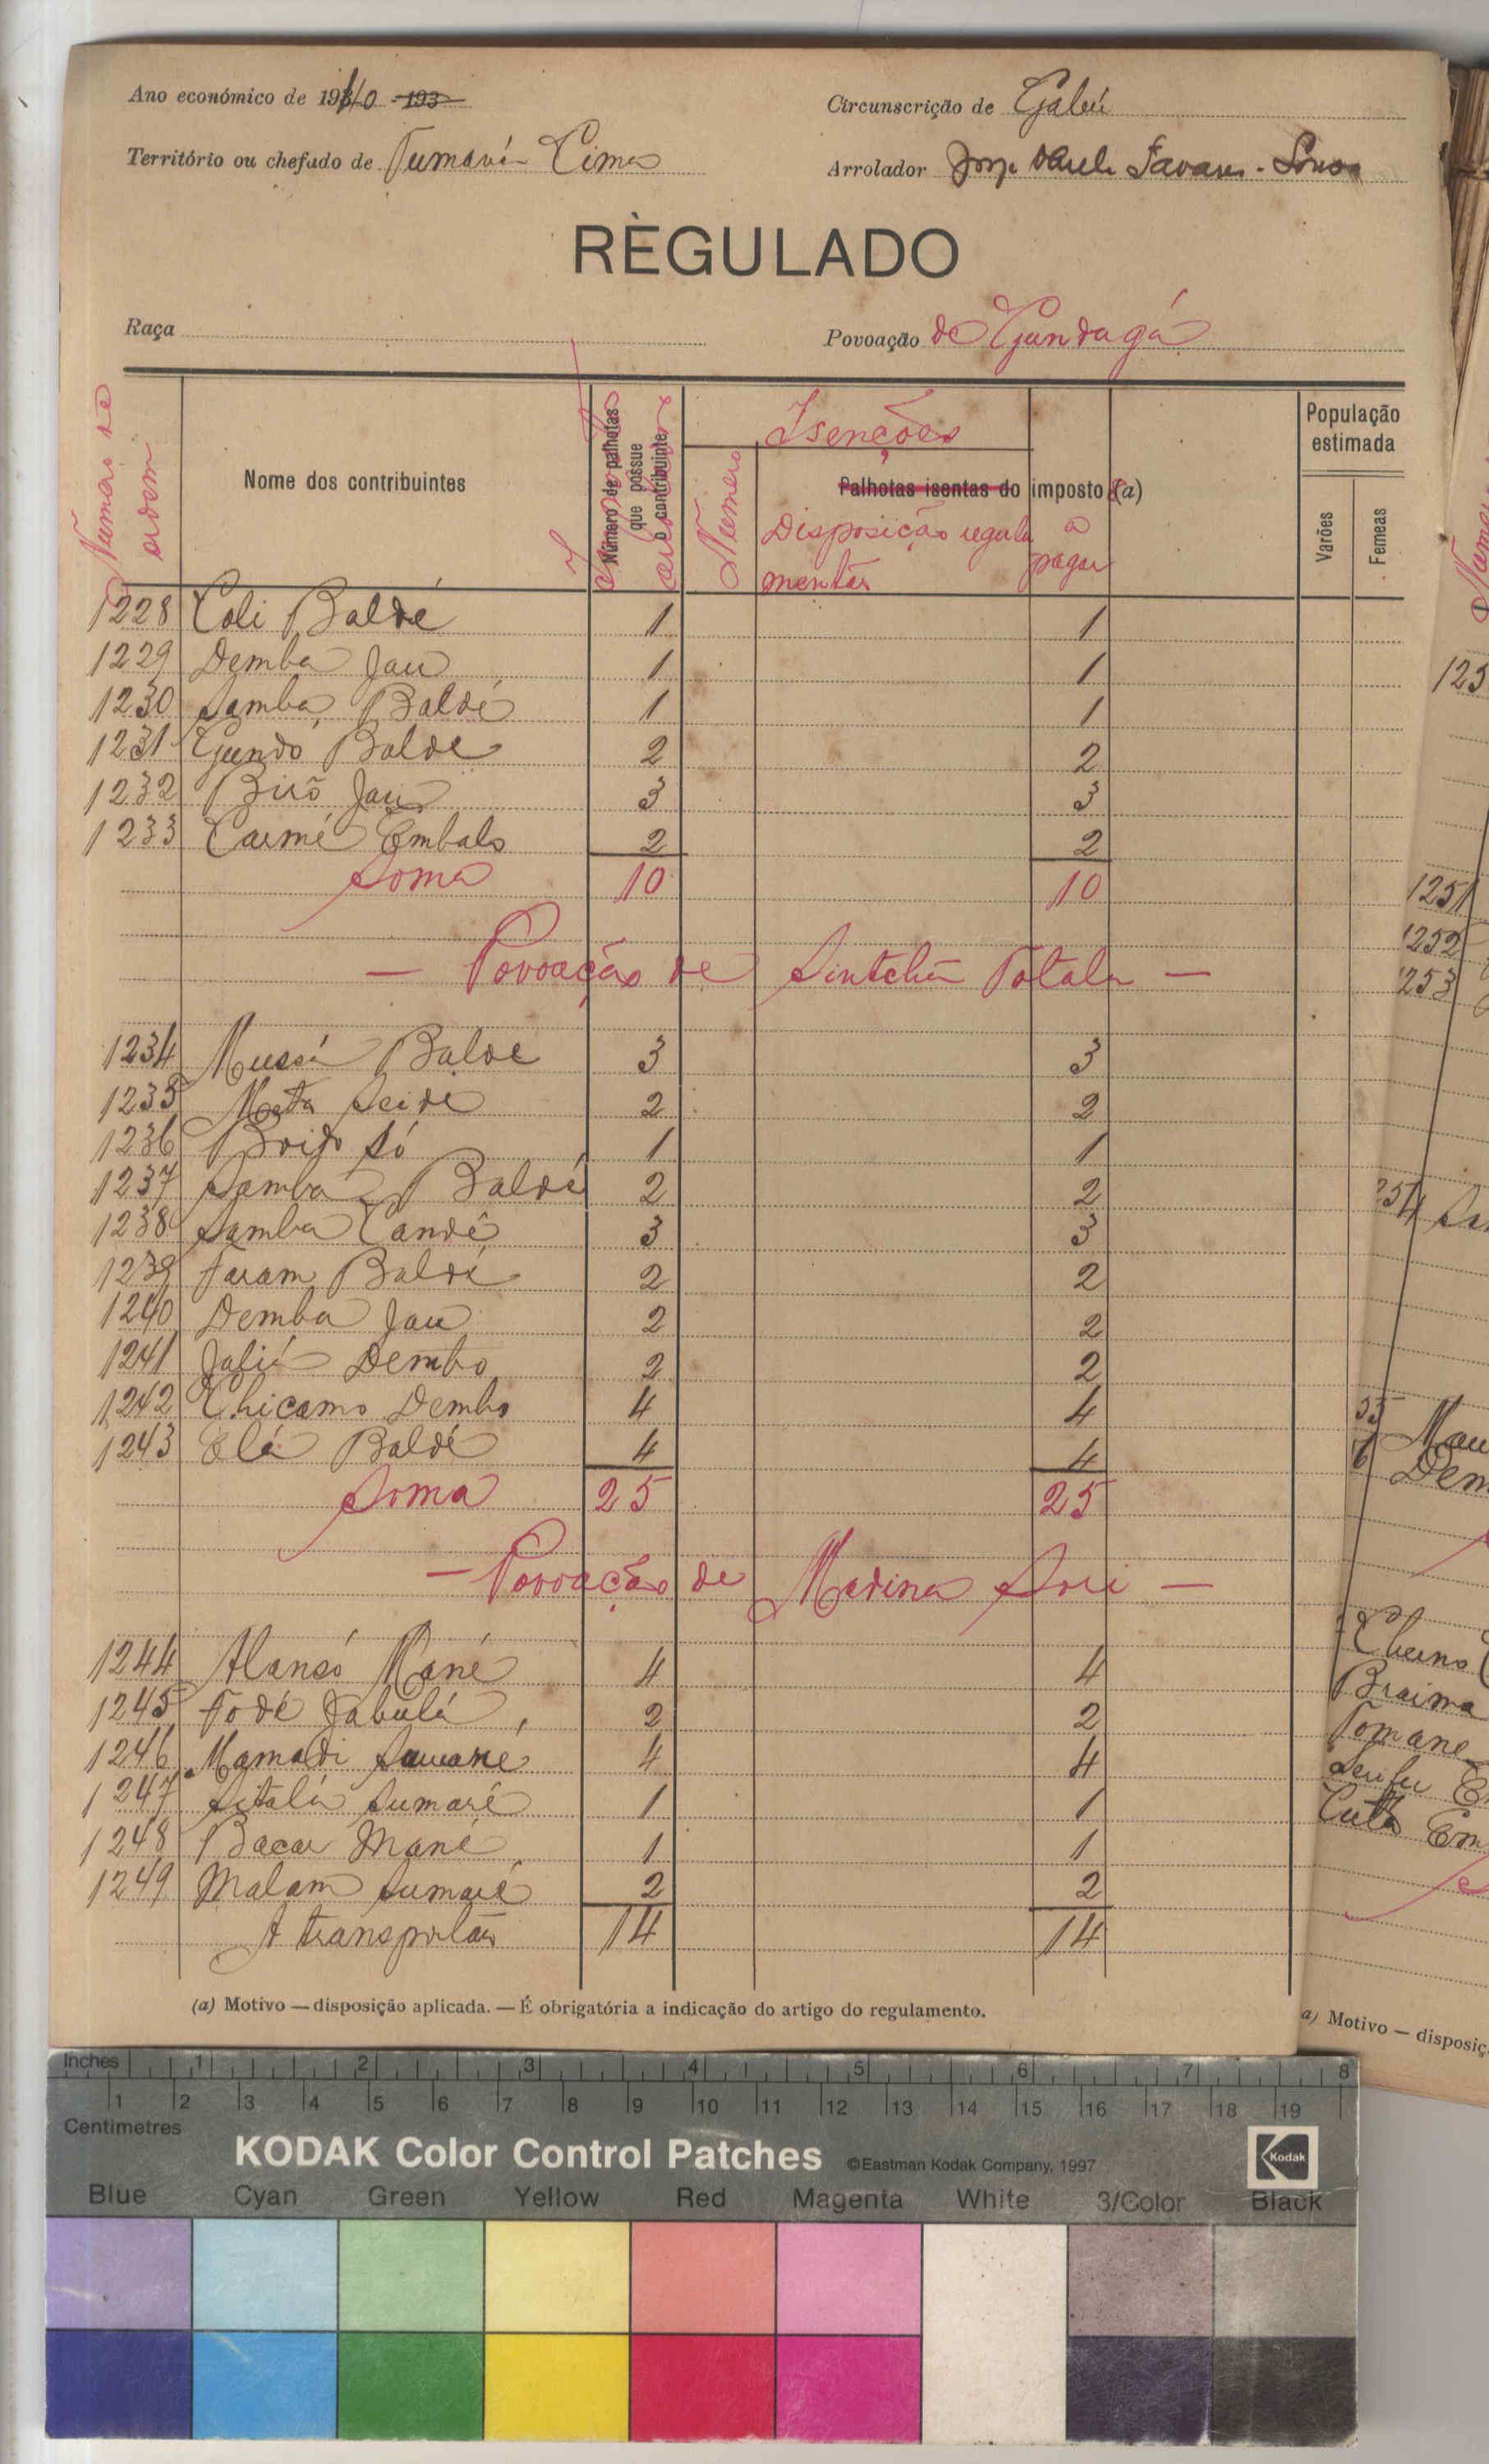 Ano económico de 1940 - 193
Circunscrição de Gabú
Território ou chefado de Tumaná Cima
Arrolador Jorge Tavares - Sousa
RÈGULADO
Raça
Povoação de Gundagá
Numero de ordem
Nome dos contribuintes
Número de palhotas que possue o contribuinte
Isenções
Numero
Palhotas isentas do imposto (a)
Disposição regula
mentar
a pagar
População estimada
Varões
Femeas
1228 Coli Baldé 1 1
1229 Demba Jau 1 1
1230 Samba Baldé 1 1
1231 Gundó Balde 2 2
1232 Birõ Jau 3 3
1233 Carmé Embalo 2 2
Soma 10 10
— Povoação de Sintchã Potala —
1234 Mussá Balde 3 3
1235 Meta Seide 2 2
1236 Boido Só 1 1
1237 Samba Baldé 2 2
1238 Samba Candê 3 3
1239 Faram Baldé 2 2
1240 Demba Jau 2 2
1241 Jaliú Dembo 2 2
1242 Chicamo Dembo 4 4
1243 Elá Baldé 4 4
Soma 25 25
— Povoação de Madina Sori —
1244 Alansó Mané 4 4
1245 Fodé Jabulá 2 2
1246 Mamadi Sumaré 4 4
1247 Sitafá Sumaré 1 1
1248 Bacar Mané 1 1
1249 Malam Sumaré 2 2
A transportar 14 14
(a) Motivo — disposição aplicada. — É obrigatória a indicação do artigo do regulamento.
125
1251
1252
253
254 Sa
55 Mau
6 Dem
Cherno
Braima
Tomane
Serifu E
Cutô Em
a) Motivo — disposiç
Inches 1 2 3 4 5 6 7 8
1 2 3 4 5 6 7 8 9 10 11 12 13 14 15 16 17 18 19
Centimetres
KODAK Color Control Patches ©Eastman Kodak Company, 1997 Kodak
Blue Cyan Green Yellow Red Magenta White 3/Color Black